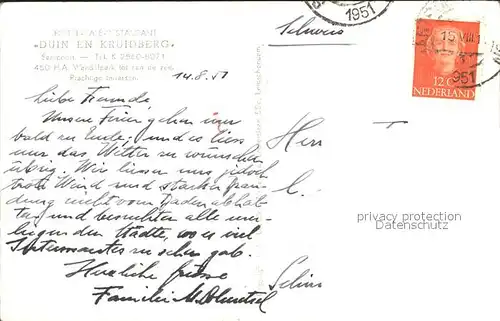 DUIN EN KRUIDBERG
Santpoort - Tel. K 2560-8071
450 H.A. Wandelpark tot aan de zee
14.8.51
Schweiz
1951
15 VIII
1951
12 C
NEDERLAND
Liebe Freunde,
Unsere Ferien gehen nun
bald zu Ende, und es liess
nur das Wetter zu wünschen
übrig. Wir liessen uns jedoch
trotz Wind und starker Bran-
dung nicht vom Baden abhal-
ten und besuchten alle um-
liegenden Städte, wo es viel
Interessantes zu sehen gab.
Herzliche Grüsse
Familie
Herr T
C.
privacy protection
Datenschutz